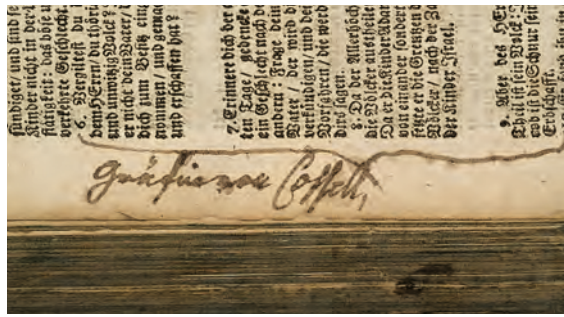 sündiget/ und sind
Kinder nicht in der
flätigkeit: das böse u
verkehrte Geschlecht.
6. Vergiltest du
dem HErrn/ du thöri
und unwitzig Volck?
er nicht dein Vater/
dich zum Besitz eing
nommen/ und gemac
und erschaffen hat?
7. Erinnere dich der e
ten Tage/ gedencke
ein Geschlecht nach de
andern: Frage dein
Vater/ der wird di
verkündigen/ und de
Vorfahren/ die werd
dirs sagen.
8. Da der Allerhöch
die Völcker austheile
Da er die Kinder Adam
von einander sondert
setzte er die Grentzen d
Völcker/ nach der Za
der Kinder Israel.
9. Aber des HEr
Theil ist sein Volck: J
und ist die Schnur sein
Erbschafft.
Gräfin von Cossell,